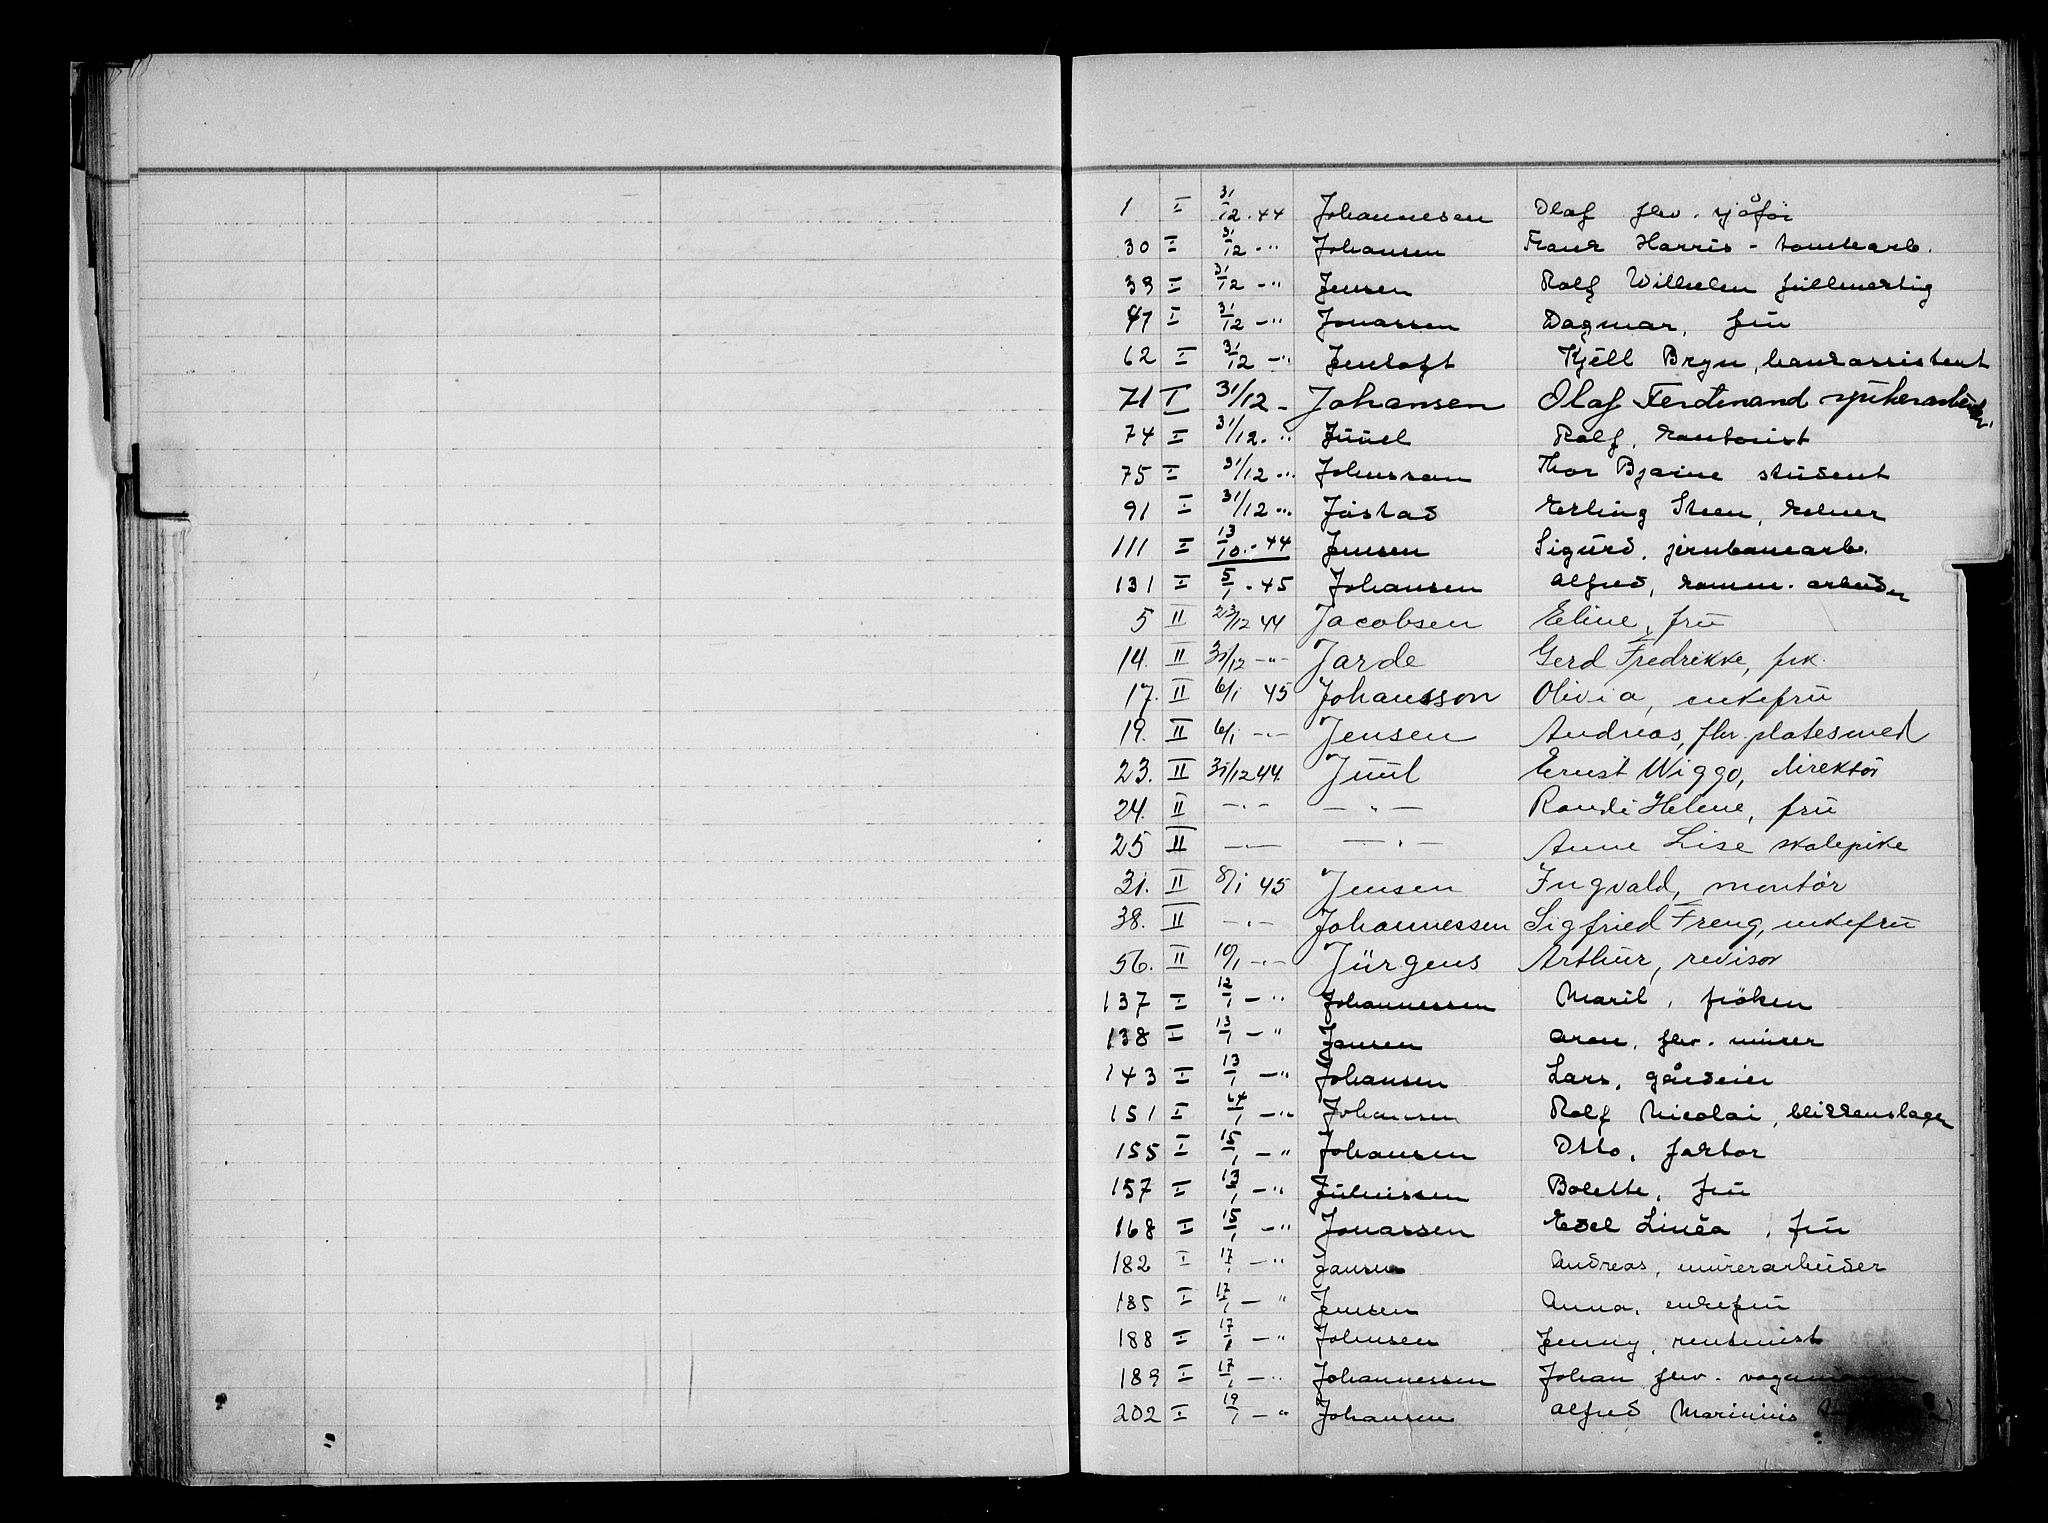 1 I 31/12-44 Johannesen Olaf fhv. sjåfør
30 I 31/12 -"- Johansen Frank Harris - tombearb.
39 I 31/12 -"- Jensen Rolf Wilhelm fullmektig
47 I 31/12 -"- Jonassen Dagmar, frù
62 I 31/12 -"- Jentoft Kjell Bryn, bankassistent
71 I 31/12 - Johansen Olaf Ferdinand spikerarbeider
74 I 31/12 -"- Juuel Rolf, kontorist
75 I 31/12 -"- Johnsson Thor Bjarne student
91 I 31/12 -"- Jøstad Erling Steen, kelner
111 I 13/10-44 Jensen Sigurd, jernbanearb.
131 I 5/1-45 Johansen Alfred, komm. arbeider
5 II 23/12 44 Jacobsen Eline, fru
14. II 31/12 -"- Jarde Gerd Fredrikke, frk.
17. II 6/1 45 Johansson Olivia, enkefru
19. II 6/1 -"- Jensen Andreas, fhv. platesmed
23. II 31/12 44 Juul Ernst Wiggo, direktør
24. II -"- -"- Randi Helene, fru
25 II -"- -"- Anne Lise skolepike
31. II 8/1 45 Jensen Ingvald, montør
38. II -"- Johannessen Sigfried Freng, enkefru
56. II 10/1 -"- Jürgens Arthur, revisor
137 I 12/1 -"- Johannessen Maril, frøken
138 I 13/1 -"- Jansen Aron, fhv. murer
143 I 13/1 -"- Johansen Lars, gårdeier
151 I 14/1 -"- Johansen Rolf Nicolai, blikkenslager
155 I 15/1 -"- Johansen Otto, faktor
157 I 13/1 -"- Juliussen Bolette, fru
168 I 15/1 -"- Jonassen Edel Linéa, fru
182 I 17/1 -"- Jansen Andreas, murerarbeider
185 I 17/1 -"- Jensen Anna, enkefru
188 I 17/1 -"- Johnsen Jenny, rentenist
189 I 17/1 -"- Johannessen Johan fhv.
202 I 19/1 -"- Johansen Alfred Marinius